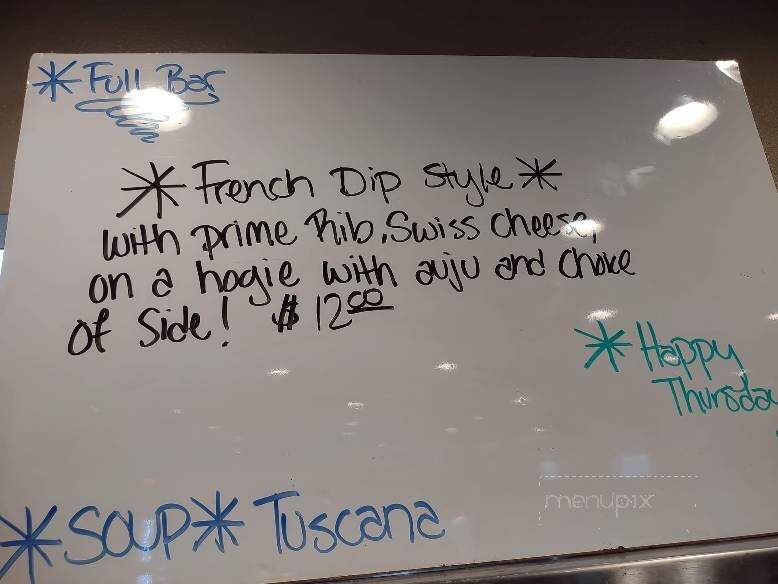 * Full Bar
* French Dip Style *
with prime Rib, Swiss cheese,
on a hogie with auju and choice
of Side! $12.00
* Happy
Thursda
*SOUP* Tuscana
menupix